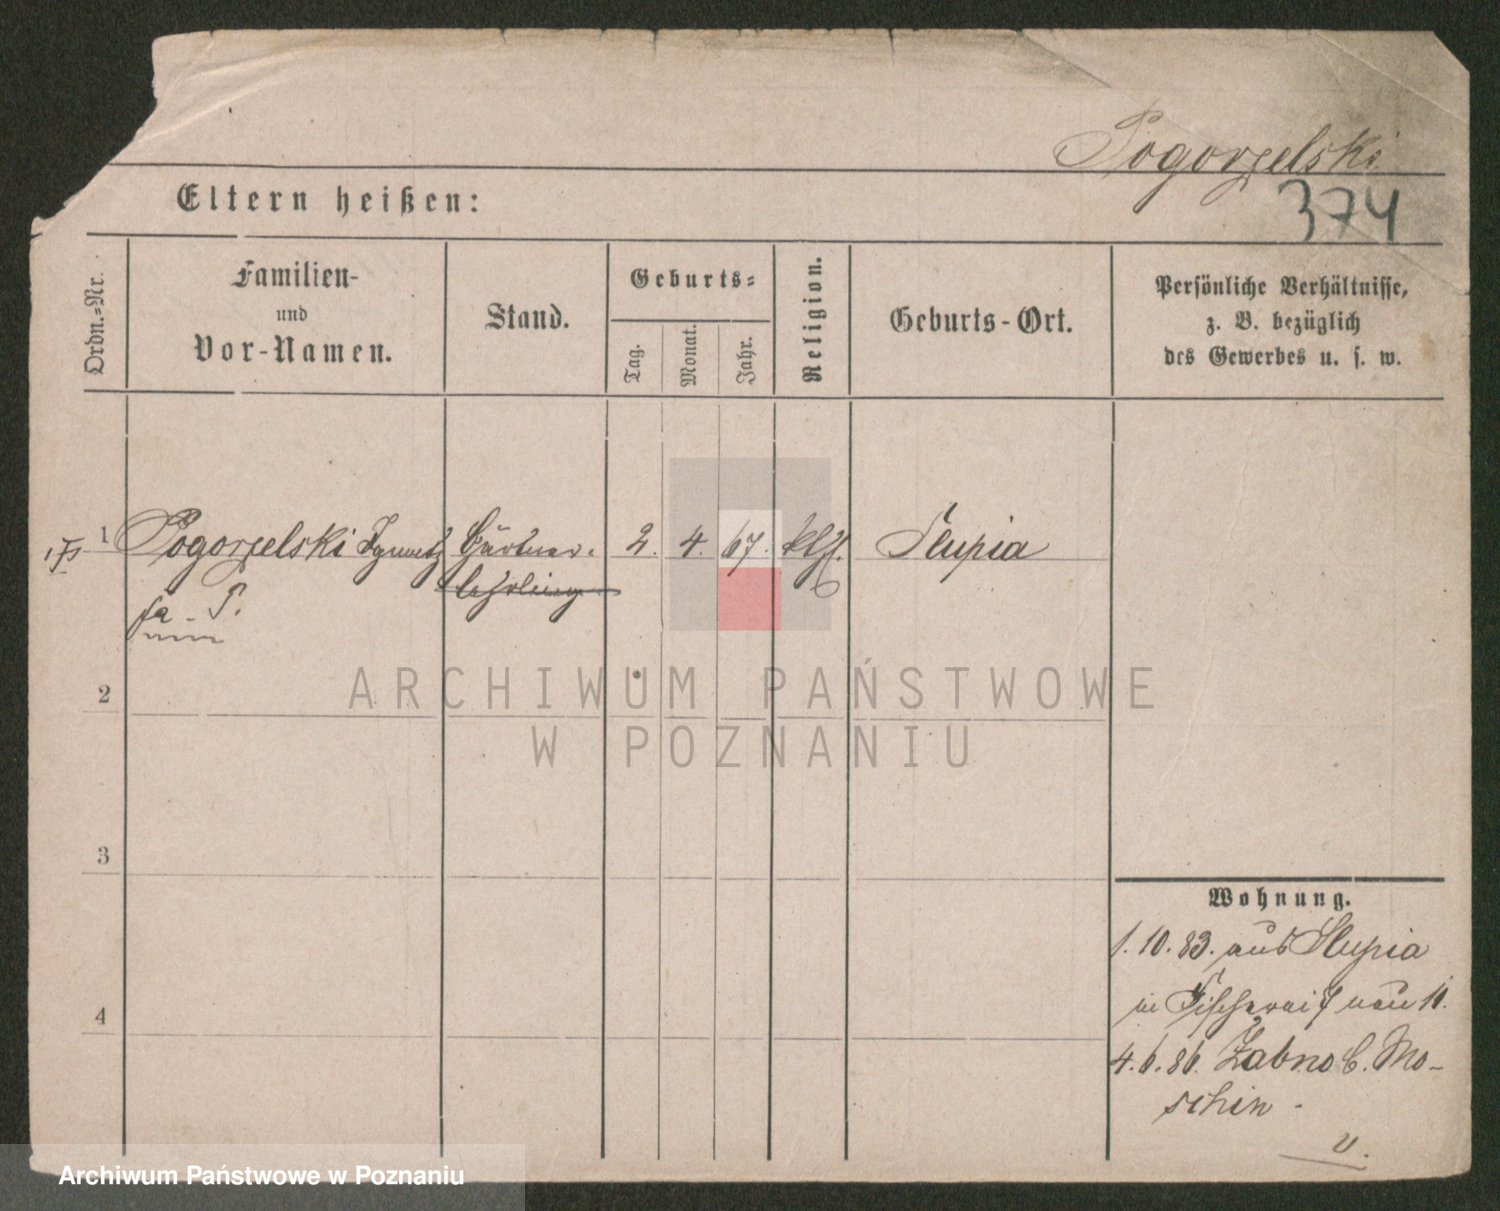 Pogorzelski
374
Eltern heißen:
Ordn.-Nr.
Familien-
und
Vor-Namen.
Stand.
Geburts-
Tag.
Monat.
Jahr.
Religion.
Geburts-Ort.
Persönliche Verhältnisse,
z. B. bezüglich
des Gewerbes u. s. w.
1 Pogorzelski Ignatz Gärtner- 2. 4. 67. kth. Slupia
lehrling
2
3
4
ARCHIWUM PAŃSTWOWE
W POZNANIU
Wohnung.
1.10.83. aus Slupia
in Fischerei 7 neu 11.
4.6.86. Zabno b. Mo-
schin -
Archiwum Państwowe w Poznaniu